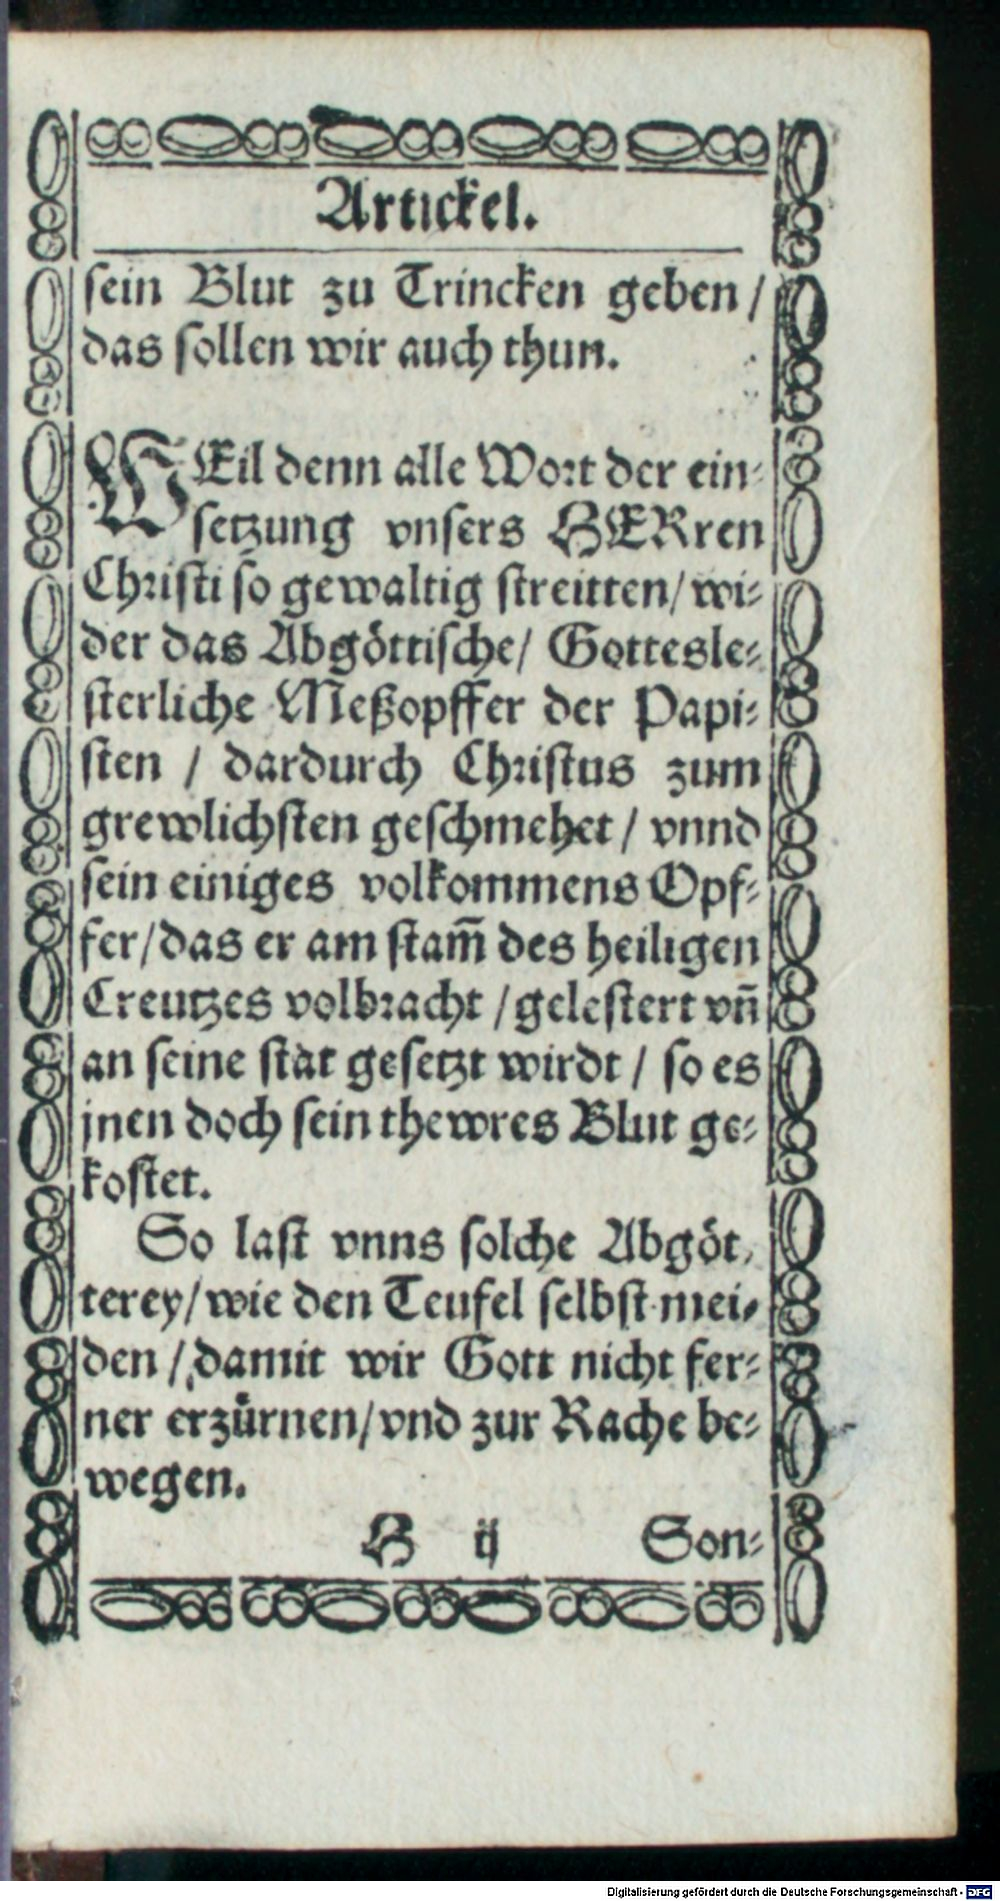 Artickel.
sein Blut zu Trincken geben /
das sollen wir auch thun.
WEil denn alle Wort der ein-
setzung vnsers HERren
Christi so gewaltig streitten/ wi-
der das Abgöttische/ Gottesle-
sterliche Meßopffer der Papi-
sten / dardurch Christus zum
grewlichsten geschmehet / vnnd
sein einiges volkommens Opf-
fer/das er am stam̃ des heiligen
Creutzes volbracht /gelestert vñ
an seine stat gesetzt wirdt / so es
jnen doch sein thewres Blut ge-
kostet.
So last vnns solche Abgöt,
terey/wie den Teufel selbst mei-
den /damit wir Gott nicht fer-
ner erzürnen/vnd zur Rache be-
wegen.
H ij Son-
Digitalisierung gefördert durch die Deutsche Forschungsgemeinschaft - DFG